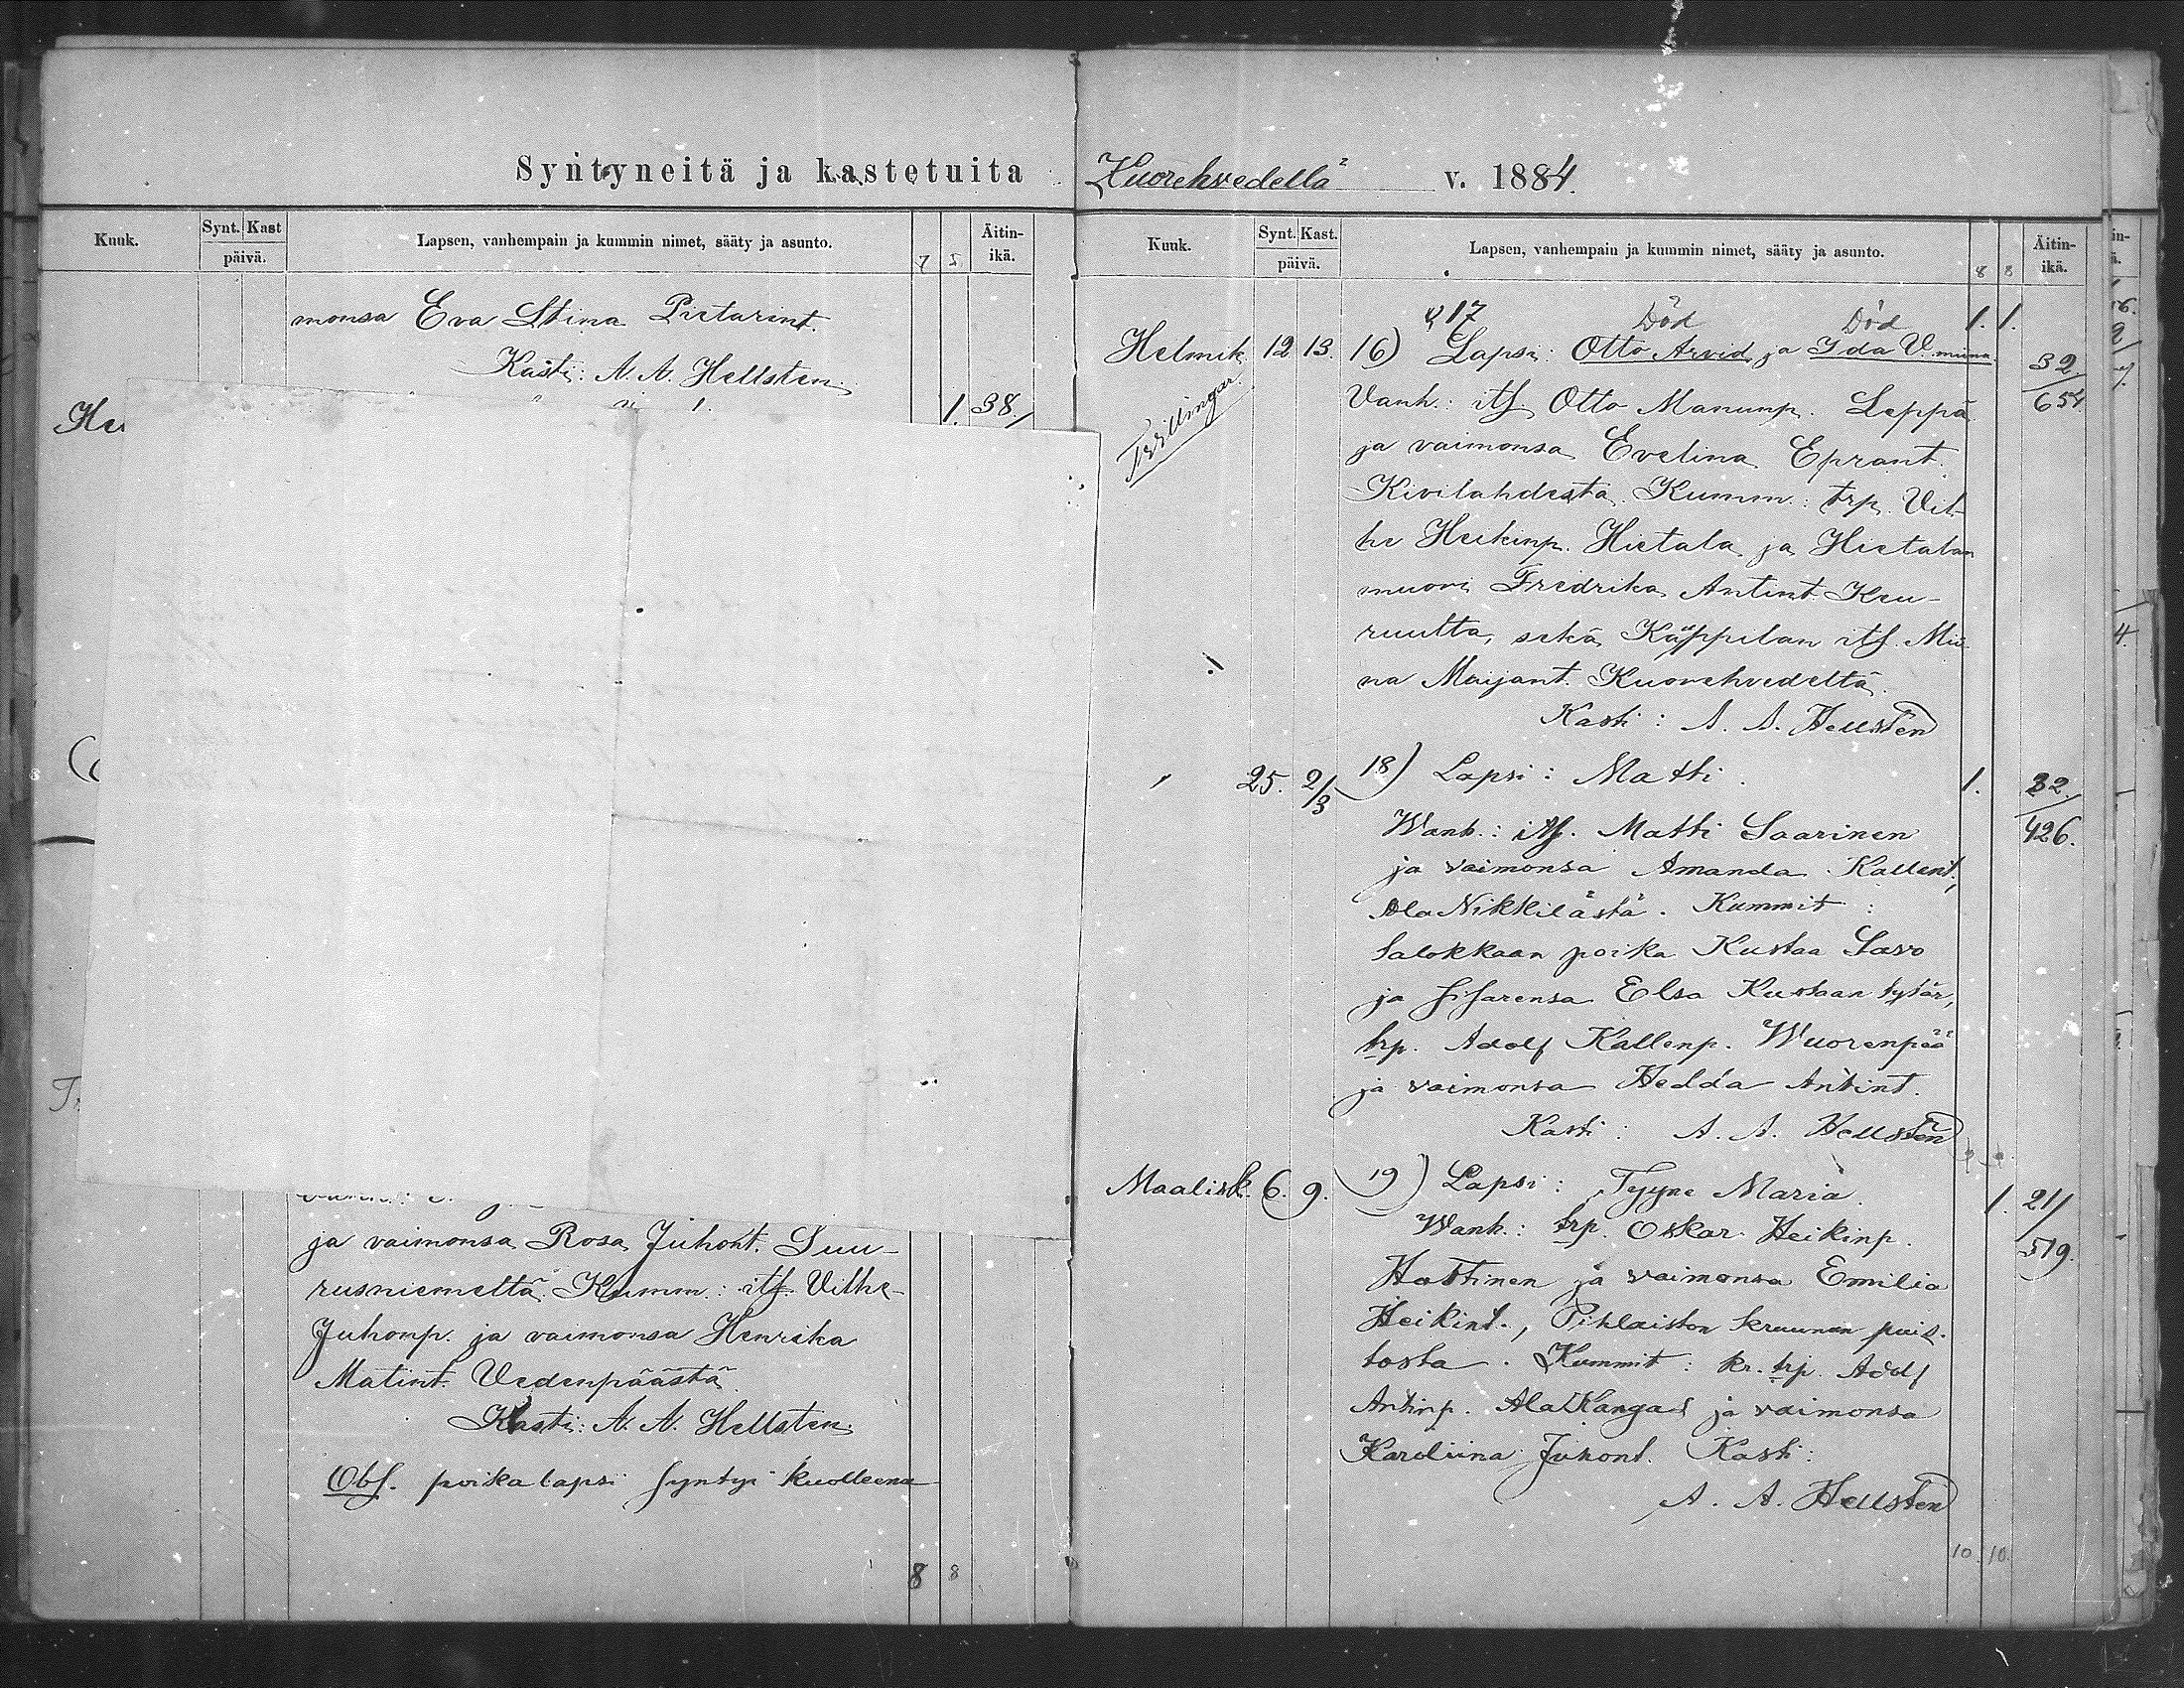 Syntyneitä ja kastetuita
Kuuk. Synt. Kast päivä. Lapsen, vanhempain ja kummin nimet, sääty ja asunto. 7 Äitin-ikä.
monsa Eva Stina Pietarint.
Kasti: A. A. Hellsten
1. 38.
ja vaimonsa Rosa Juhont. Suu-
rusniemeltä. Kumm.: itf. Vilhe-
Juhonp. ja vaimonsa Henrika
Matint. Vedenpäästä
Kasti: A. A. Hellsten
Obs. poika lapsi syntyi kuolleena
8 8
Kuorehvedellä v. 1884.
Kuuk. Synt. Kast. päivä. Lapsen, vanhempain ja kummin nimet, sääty ja asunto. 8 8 Äitin-ikä.
17 Död Död 1. 1.
Helmik. 12 13. 16) Lapsi: Otto Arvid ja Ida V.miina 32.
Tvillingar. Vanh.: itf. Otto Manunp. Leppä 654
ja vaimonsa Evelina Eprant.
Kivilahdesta. Kumm.: trp. Vil-
he Heikinp. Hietala ja Hietalan
muori Fredrika Antint. Keu-
ruulta, sekä Käppilän itf. Mii-
na Maijant. Kuorehvedeltä.
Kasti: A. A. Hellsten
" 25. 2/3 18) Lapsi: Matti. 1. 32.
Wanh.: itf. Matti Saarinen 426.
ja vaimonsa Amanda Kallent.,
Ala Nikkilästä. Kummit:
Salokkaan poika Kustaa Savo
ja sisarensa Elsa Kustaan tytär,
trp. Adolf Kallenp. Wuorenpää
ja vaimonsa Hedda Antint.
Kasti: A. A. Hellsten
Maalisk. 6. 9. 19) Lapsi: Tyyne Maria. 1. 21/
Wanh.: trp. Oskar Heikinp. 519.
Hastinen ja vaimonsa Emilia
Heikint., Pihlaiston kruunun puis-
tosta. Kummit: kr. trp. Adolf
Antinp. AlaKangas ja vaimonsa
Karoliina Juhont. Kasti:
A. A. Hellsten
10. 10.